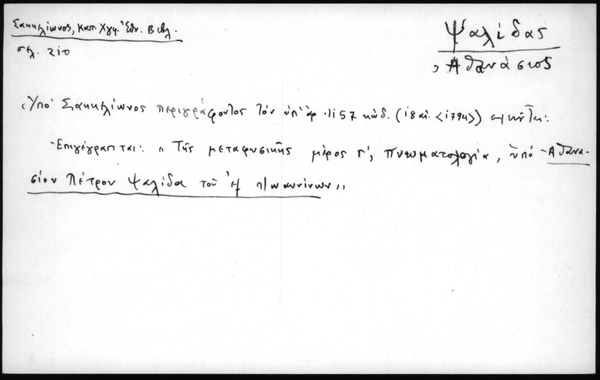 Σακκελίωνος, Κατ. Χγφ. Ἐθν. Βιβλ.
σελ. 210
Ψαλίδας
Ἀθανάσιος
Ὑπὸ Σακκελίωνος περιγράφοντος τὸν ὑπ' ἀρ. 1157 κώδ. (18 αἰ. <1794>)
Ἐπιγέγραπται: "Τῆς μεταφυσικῆς μέρος Γ', Πνευματολογία, ὑπὸ Ἀθανα-
σίου Πέτρου Ψαλίδα τοῦ ἐξ Ἰωαννίνων"